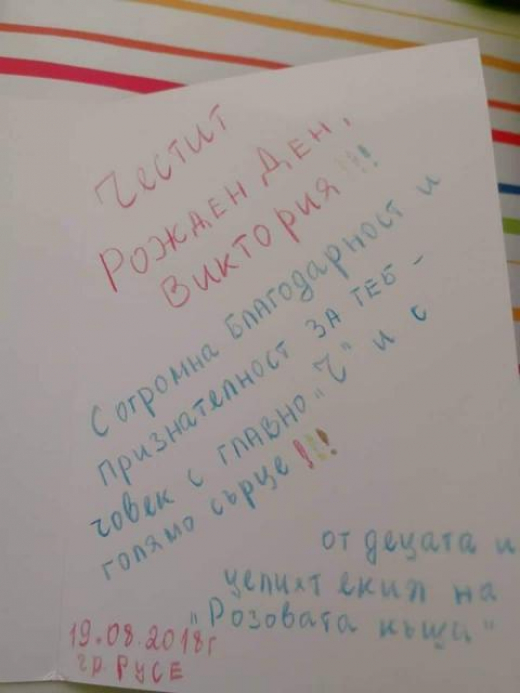 Честит
Рожден Ден,
Виктория !!!
С огромна благодарност и
признателност за теб -
човек с главно "Ч" и с
голямо сърце !!!
от децата и
целият екип на
"Розовата къща"
19.08.2018г
гр. Русе